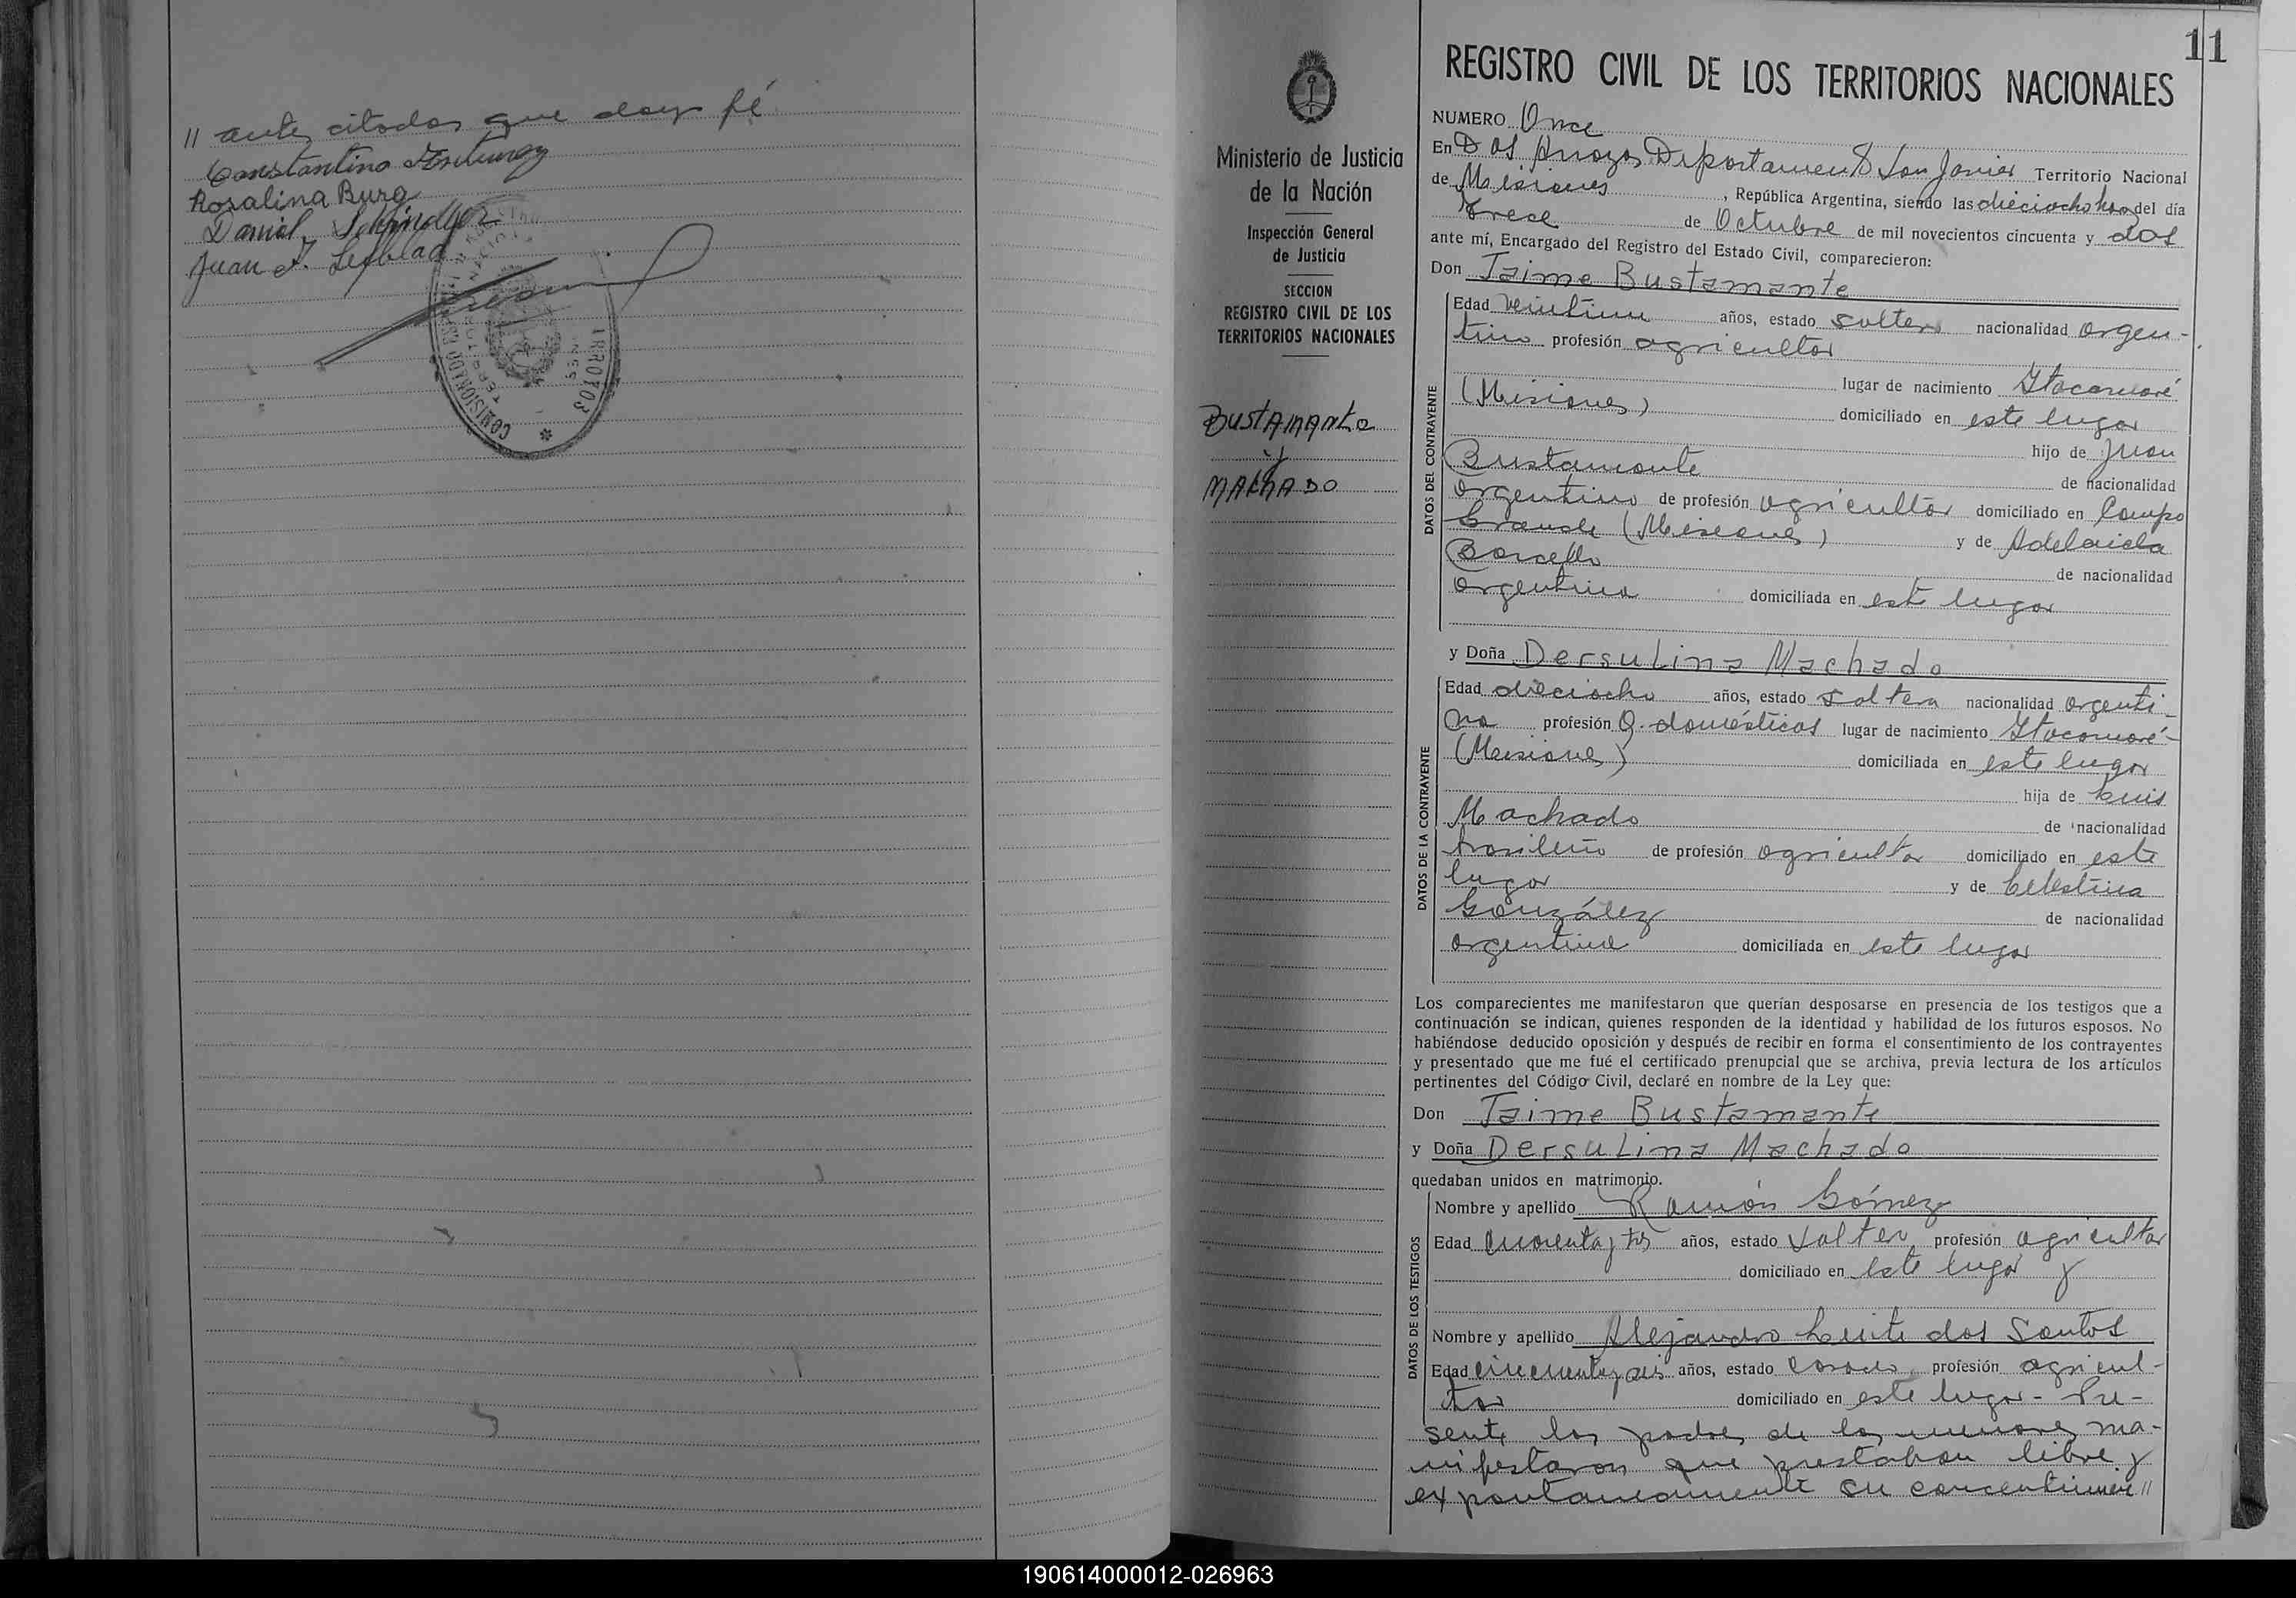 // antes citados que doy fé
Constantino
Rosalina Burg
Daniel Schindler
Juan
COMISIONADO
11
REGISTRO CIVIL DE LOS TERRITORIOS NACIONALES
Ministerio de Justicia
de la Nación
Inspección General
de Justicia
SECCION
REGISTRO CIVIL DE LOS
TERRITORIOS NACIONALES
BUSTAMANTE
y
MACHADO
NUMERO Once
En Dos Arroyos Departamento San Javier Territorio Nacional
de Misiones, República Argentina, siendo las dieciocho horas del día
trece de Octubre de mil novecientos cincuenta y dos
ante mí, Encargado del Registro del Estado Civil, comparecieron:
Don Jaime Bustamante
DATOS DEL CONTRAYENTE
Edad veintiun años, estado soltero nacionalidad argen-
tino profesión agricultor
lugar de nacimiento Itacaruaré
(Misiones) domiciliado en este lugar
hijo de Juan
Bustamante de nacionalidad
argentino de profesión agricultor domiciliado en Campo
Grande (Misiones) y de Adelaida
de nacionalidad
argentina domiciliada en este lugar
y Doña Dersulina Machado
DATOS DE LA CONTRAYENTE
Edad dieciocho años, estado soltera nacionalidad argenti-
na profesión Q. domésticos lugar de nacimiento Itacaruaré-
(Misiones) domiciliada en este lugar
hija de Luis
Machado de nacionalidad
brasileño de profesión agricultor domiciliado en este
lugar y de Celestina
González de nacionalidad
argentina domiciliada en este lugar
Los comparecientes me manifestaron que querían desposarse en presencia de los testigos que a
continuación se indican, quienes responden de la identidad y habilidad de los futuros esposos. No
habiéndose deducido oposición y después de recibir en forma el consentimiento de los contrayentes
y presentado que me fué el certificado prenupcial que se archiva, previa lectura de los artículos
pertinentes del Código Civil, declaré en nombre de la Ley que:
Don Jaime Bustamante
y Doña Dersulina Machado
quedaban unidos en matrimonio.
DATOS DE LOS TESTIGOS
Nombre y apellido Ramón Gómez
Edad cuarenta y tres años, estado soltero profesión agricultor
domiciliado en este lugar y
Nombre y apellido Alejandro Leite dos Santos
Edad cincuenta y seis años, estado casado, profesión agricul-
tor domiciliado en este lugar- Pre-
sente los padres de los menores ma-
nifestaron que prestaban libre y
expontaneamente su concentimien//
190614000012-026963